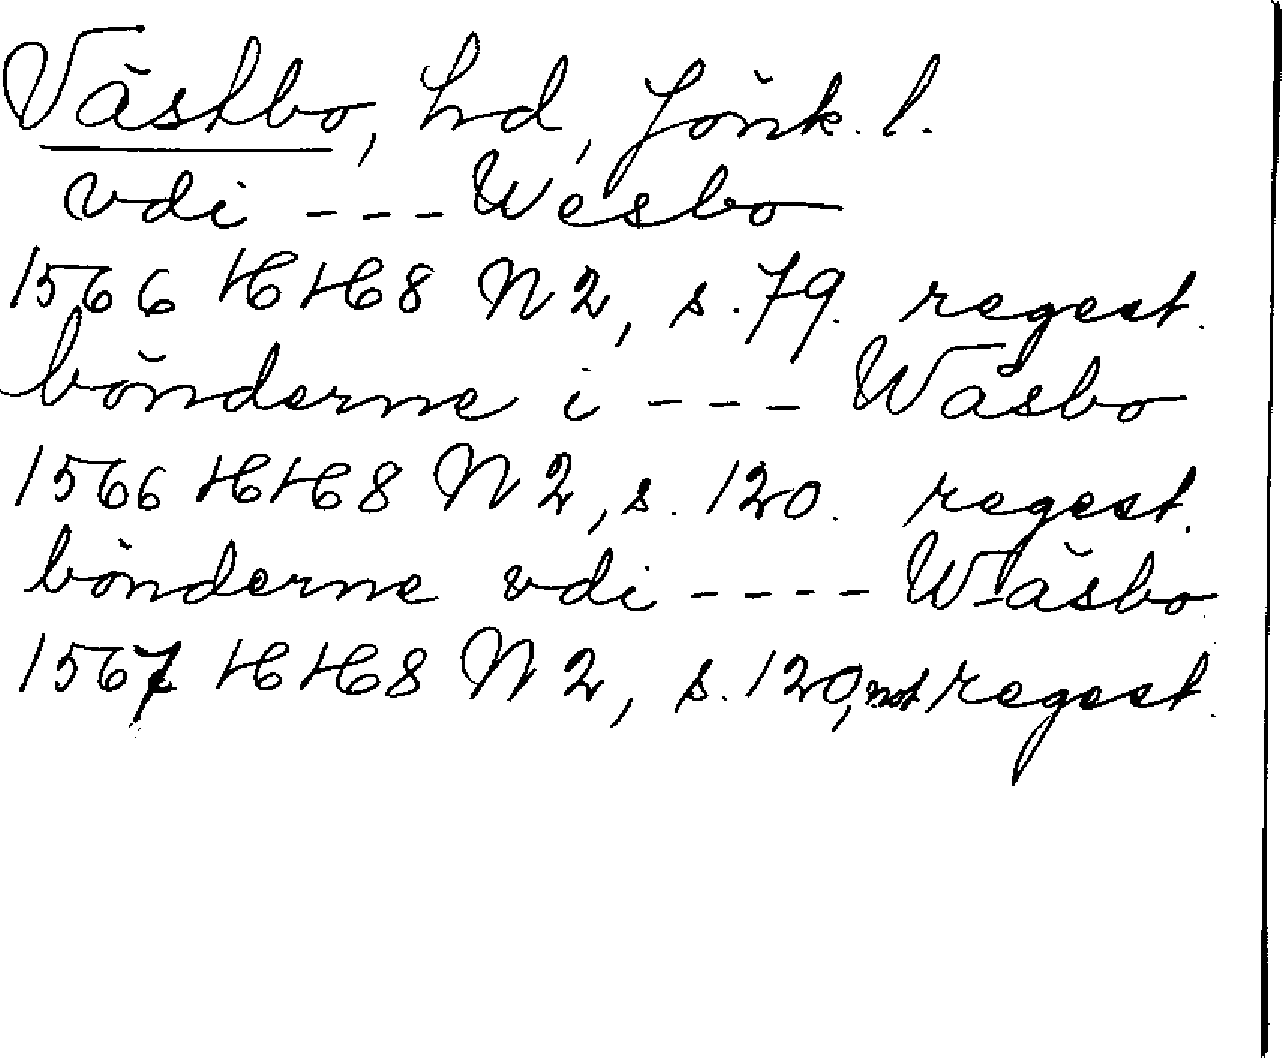 Västbo, hd, Jönk. l.
vdi --- Wesbo
1566 HH8 N2, s. 79. regest.
bönderne i --- Wäsbo
1566 HH8 N2, s. 120. regest.
bönderne vdi ---- Wäsbo
1567 HH8 N2, s. 120, not regest.